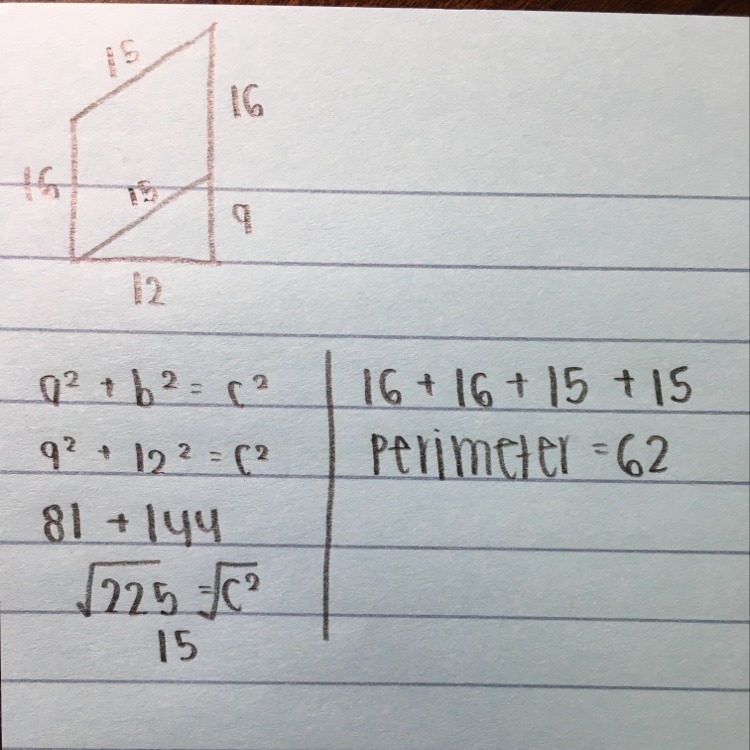 15
16
16
15
9
12
a² + b² = c²
9² + 12² = c²
81 + 144
√225 = √c²
15
16 + 16 + 15 + 15
perimeter = 62